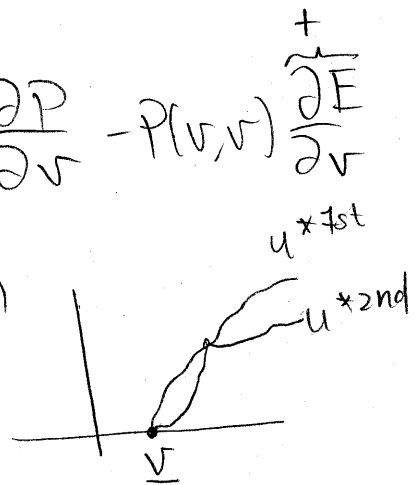 +
∂P/∂v - P(v,v) ∂E/∂v
u*1st
u*2nd
v